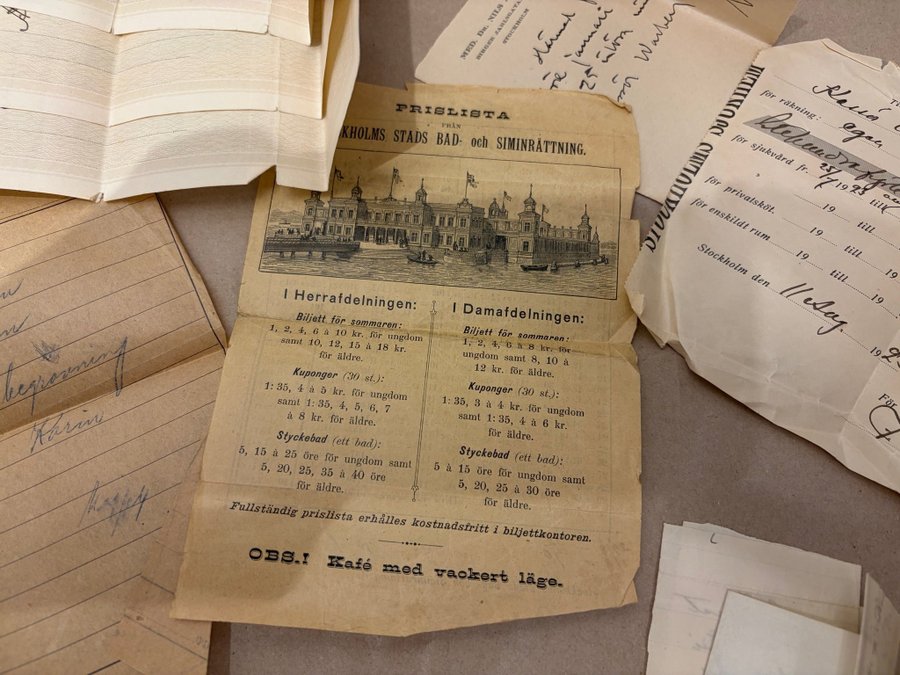 PRISLISTA
FRÅN
KHOLMS STADS BAD- och SIMINRÄTTNING.
I Herrafdelningen:
Biljett för sommaren:
1, 2, 4, 6 à 10 kr. för ungdom
samt 10, 12, 15 à 18 kr.
för äldre.
Kuponger (30 st.):
1: 35, 4 à 5 kr. för ungdom
samt 1: 35, 4, 5, 6, 7
à 8 kr. för äldre.
Styckebad (ett bad):
5, 15 à 25 öre för ungdom samt
5, 20, 25, 35 à 40 öre
för äldre.
I Damafdelningen:
Biljett för sommaren:
1, 2, 4, 6 à 8 kr. för
ungdom samt 8, 10 à
12 kr. för äldre.
Kuponger (30 st.):
1: 35, 3 à 4 kr. för ungdom
samt 1: 35, 4 à 6 kr.
för äldre.
Styckebad (ett bad):
5 à 15 öre för ungdom samt
5, 20, 25 à 30 öre
för äldre.
Fullständig prislista erhålles kostnadsfritt i biljettkontoren.
OBS.! Kafé med vackert läge.
MED. Dr. NILS
BIRGER JARLSGATA
STOCKHOLM
januari
25
för räkning:
för sjukvård fr. 25/7 1925
till
för privatsköt. 19 till
för enskildt rum 19 till 19
19 till 19
Stockholm den 11 Aug. 19
För
begravning
Karin